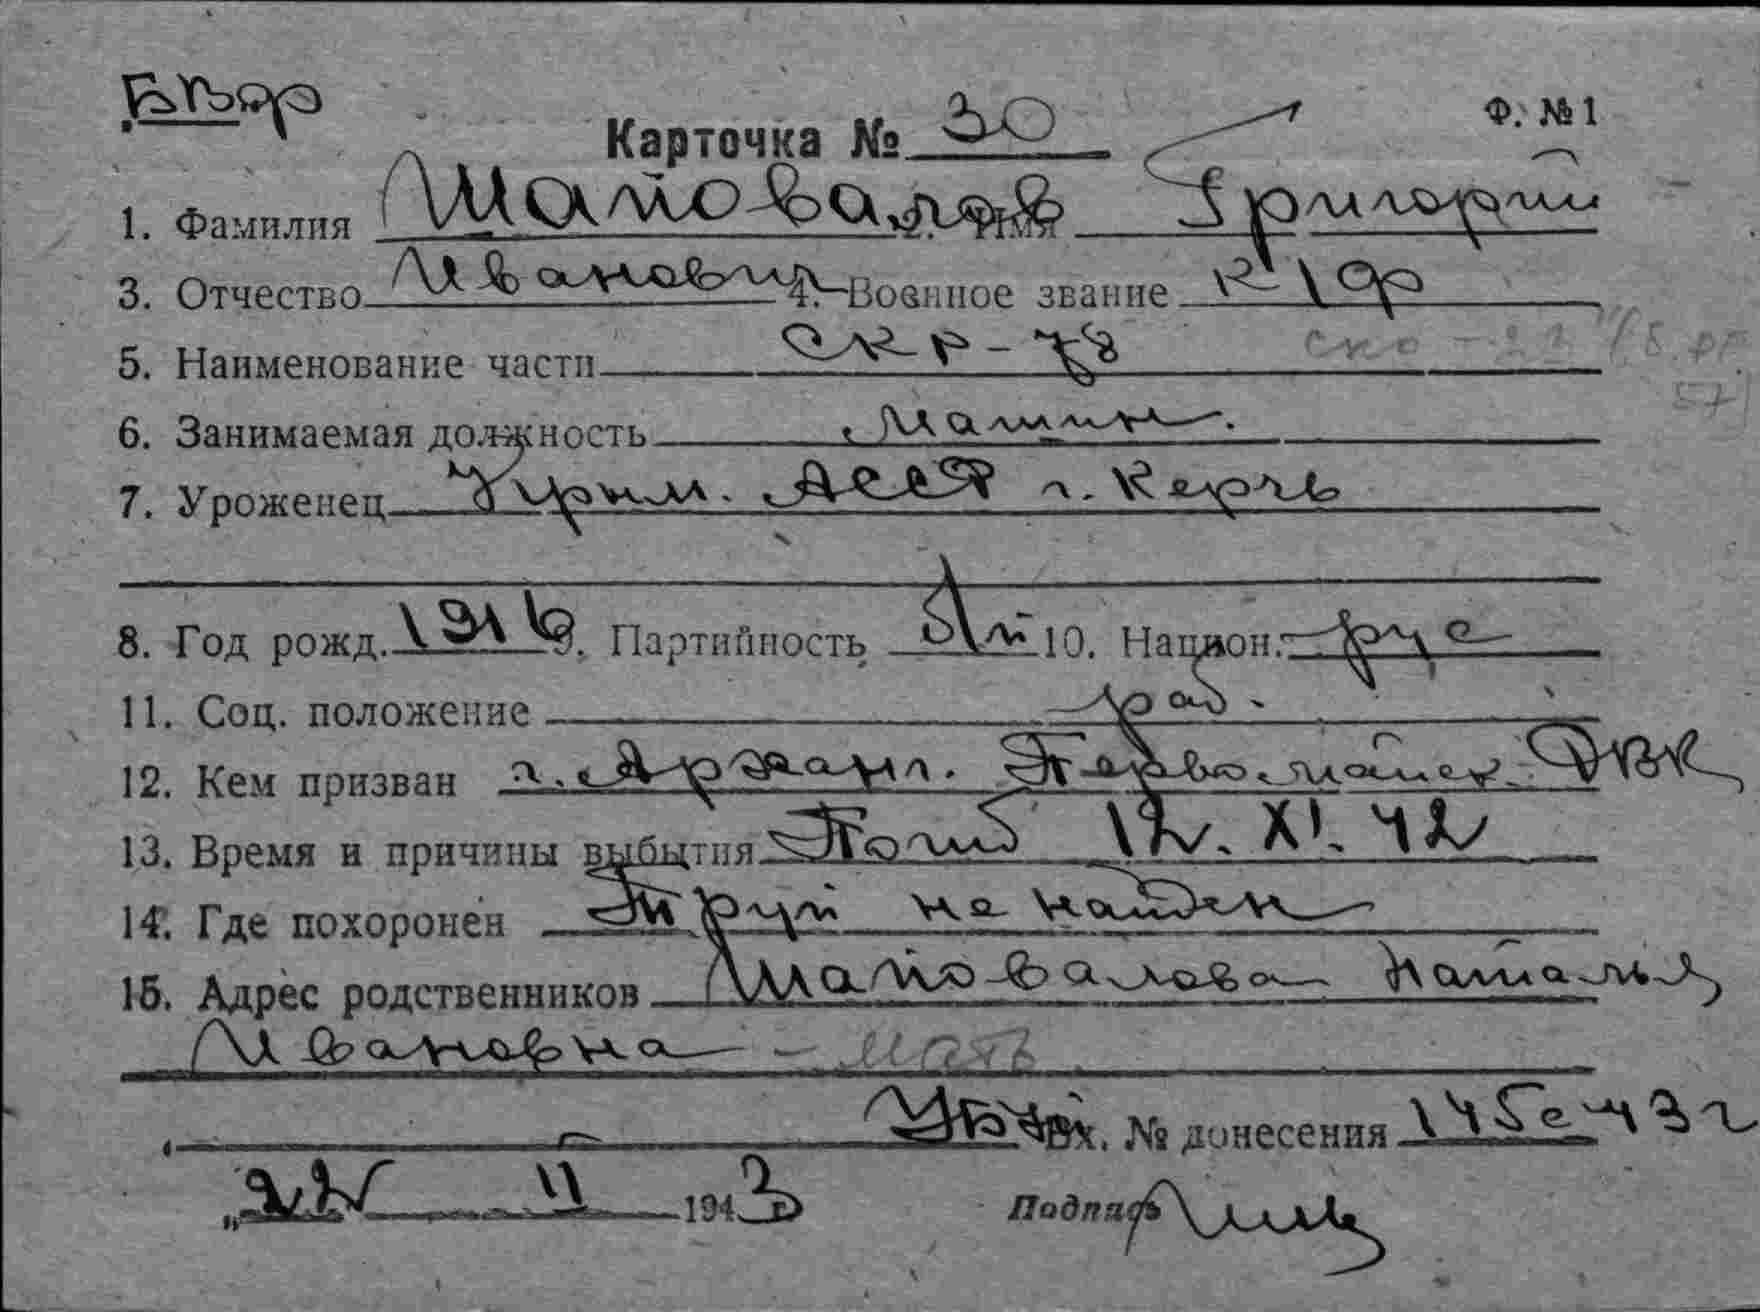 Карточка № 30 Ф. №1
1. Фамилия Шаповалов 2. Имя Григорий
3. Отчество Иванович 4. Военное звание к-1ф
5. Наименование части СКР-78
6. Занимаемая должность машин.
7. Уроженец Крым. АССР г. Керчь
8. Год рожд. 1916 9. Партийность б/п 10. Национ. рус
11. Соц. положение раб.
12. Кем призван г. Архангл. Первомайск. РВК
13. Время и причины выбытия Погиб 12. XI. 42
14. Где похоронен Труп не найден
15. Адрес родственников Шаповалова Наталия
Ивановна - мать
Вх. № донесения 145с-43г
„22" II 1943 Подпись